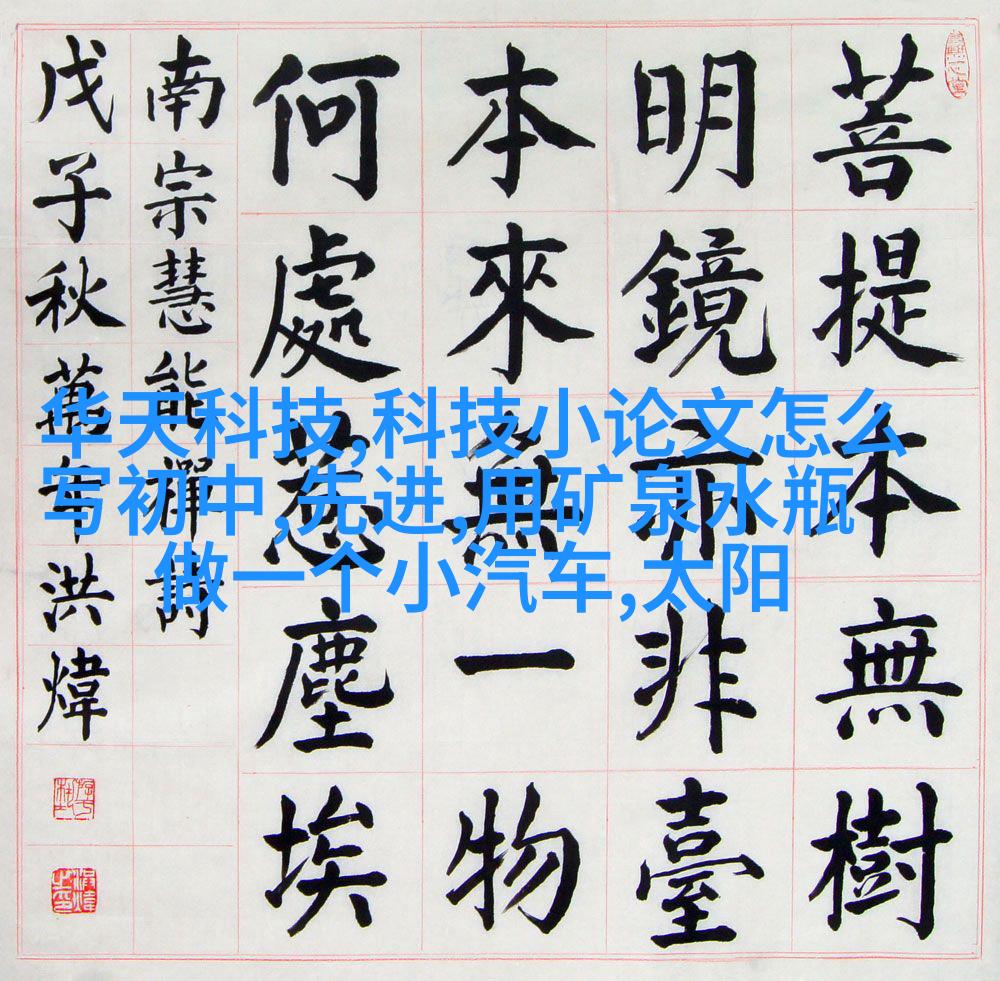 菩提本無樹
明鏡亦非臺
本來無一物
何處惹塵埃
南宗慧能禪詩
戊子秋萬年洪煒
华天科技,科技小论文怎么
写初中,先进,用矿泉水瓶
做一个小汽车,太阳